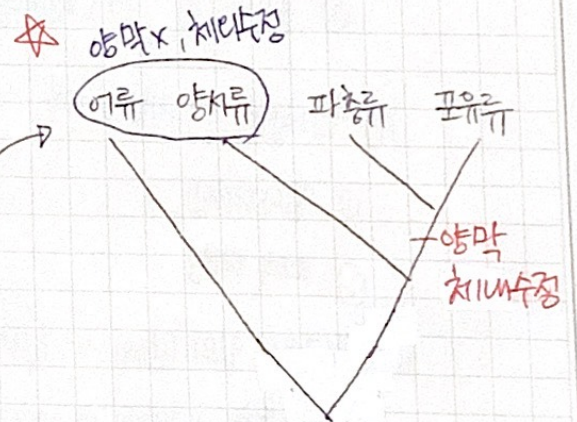 양막X, 체외수정
어류 양서류 파충류 포유류
양막
체내수정